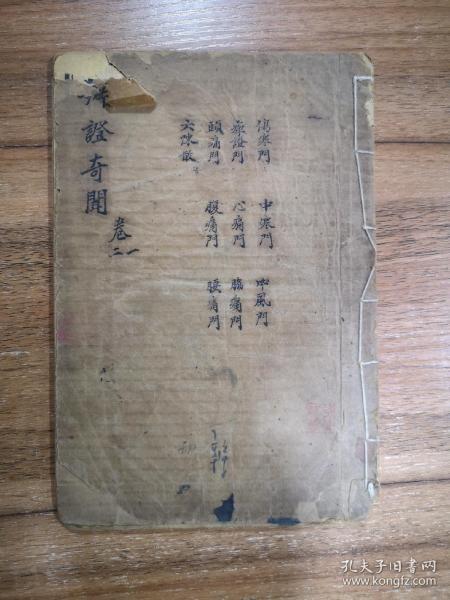 傷寒門 中寒門 中風門
痹證門 心痛門 脇痛門
頭痛門 腹痛門 腰痛門
辨證奇聞 卷一二
孔夫子旧书网
www.kongfz.com